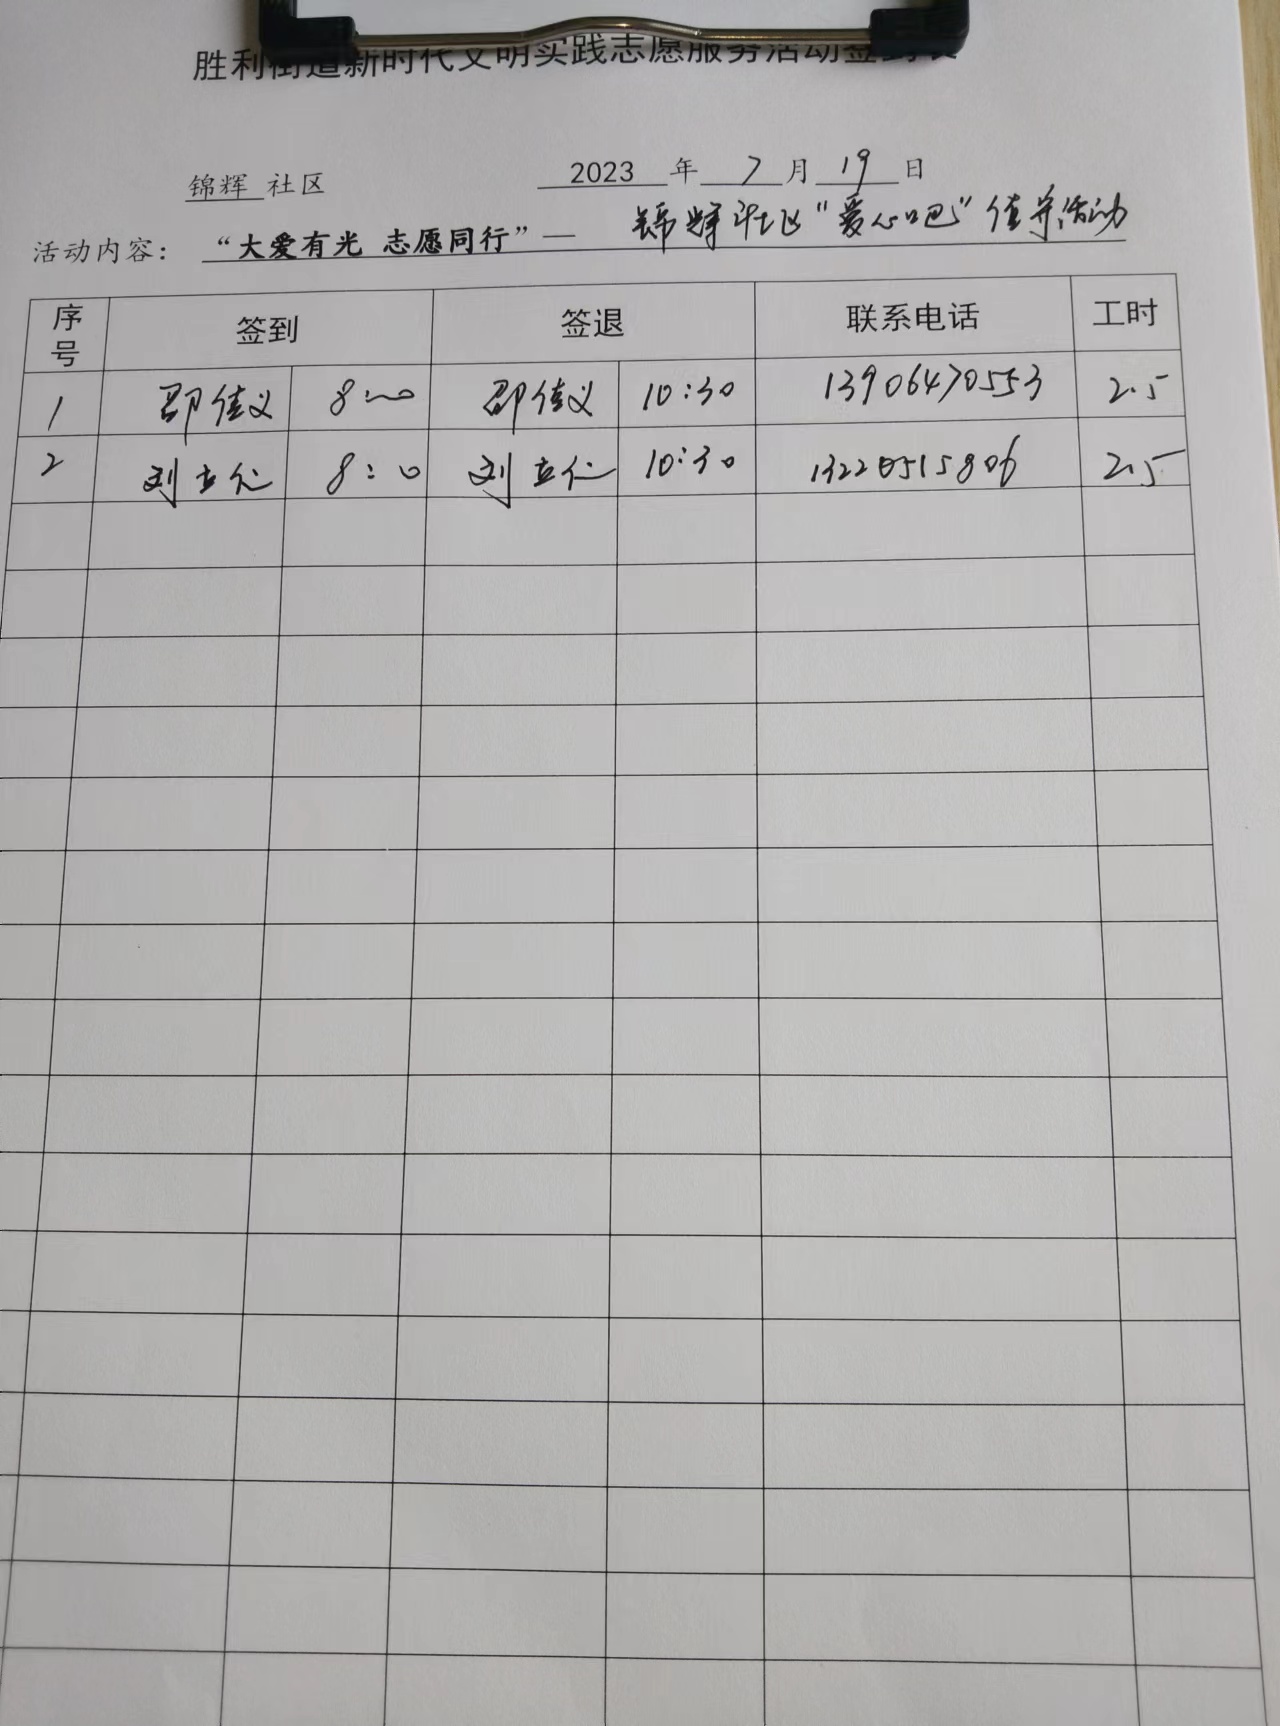 胜利街道新时代文明实践志愿服务活动签到表
锦辉 社区 2023 年 7 月 19 日
活动内容: “大爱有光 志愿同行”— 锦辉社区“爱心吧”值岗活动
序号 签到 签退 联系电话 工时
1 邵佳义 8:00 邵佳义 10:30 13906470553 2.5
2 刘立仁 8:0 刘立仁 10:30 13220515806 2.5